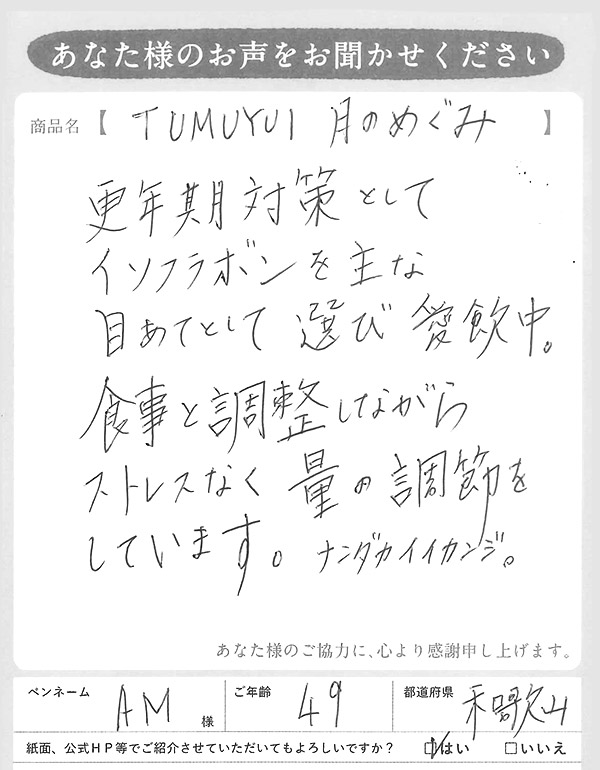 あなた様のお声をお聞かせください
商品名【 TUMUYUI 月のめぐみ 】
更年期対策として
イソフラボンを主な
目あてとして選び愛飲中。
食事と調整しながら
ストレスなく量の調節を
しています。ナンダカイイカンジ。
あなた様のご協力に、心より感謝申し上げます。
ペンネーム AM 様 ご年齢 49 都道府県 和歌山
紙面、公式HP等でご紹介させていただいてもよろしいですか? ☑はい □いいえ